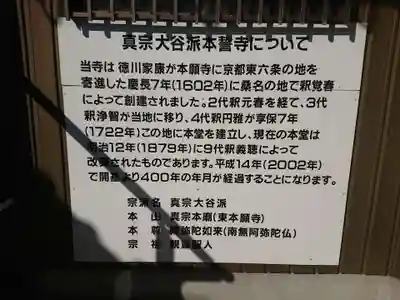 真宗大谷派本誓寺について
当寺は 徳川家康が本願寺に京都東六条の地を
寄進した慶長7年(1602年)に桑名の地で釈覚春
によって創建されました。2代釈元春を経て、3代
釈浄智が当地に移り、4代円雅が享保7年
(1722年)この地に本堂を建立し、現在の本堂は
明治12年(1879年)に9代釈義聴によって
改築されたものであります。平成14年(2002年)
で開基より400年の年月が経過することになります。
宗派名 真宗大谷派
本山 真宗本廟(東本願寺)
本尊 阿弥陀如来(南無阿弥陀仏)
宗祖 親鸞聖人